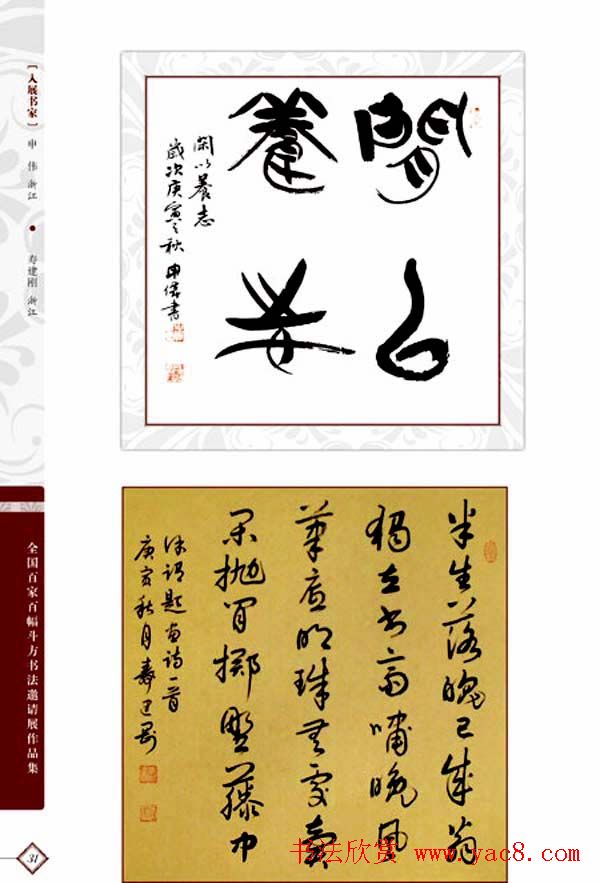 [入展书家]
申 伟 浙江
●
寿建刚 浙江
全国百家百幅斗方书法邀请展作品集
31
閒以
養志
闲以養志
歲次庚寅之秋 申偉書
半生落魄已成翁
独立书斋啸晚风
笔底明珠无处卖
闲抛闲掷野藤中
徐渭题画诗一首
庚寅秋月寿建刚
书法欣赏 www.yac8.com